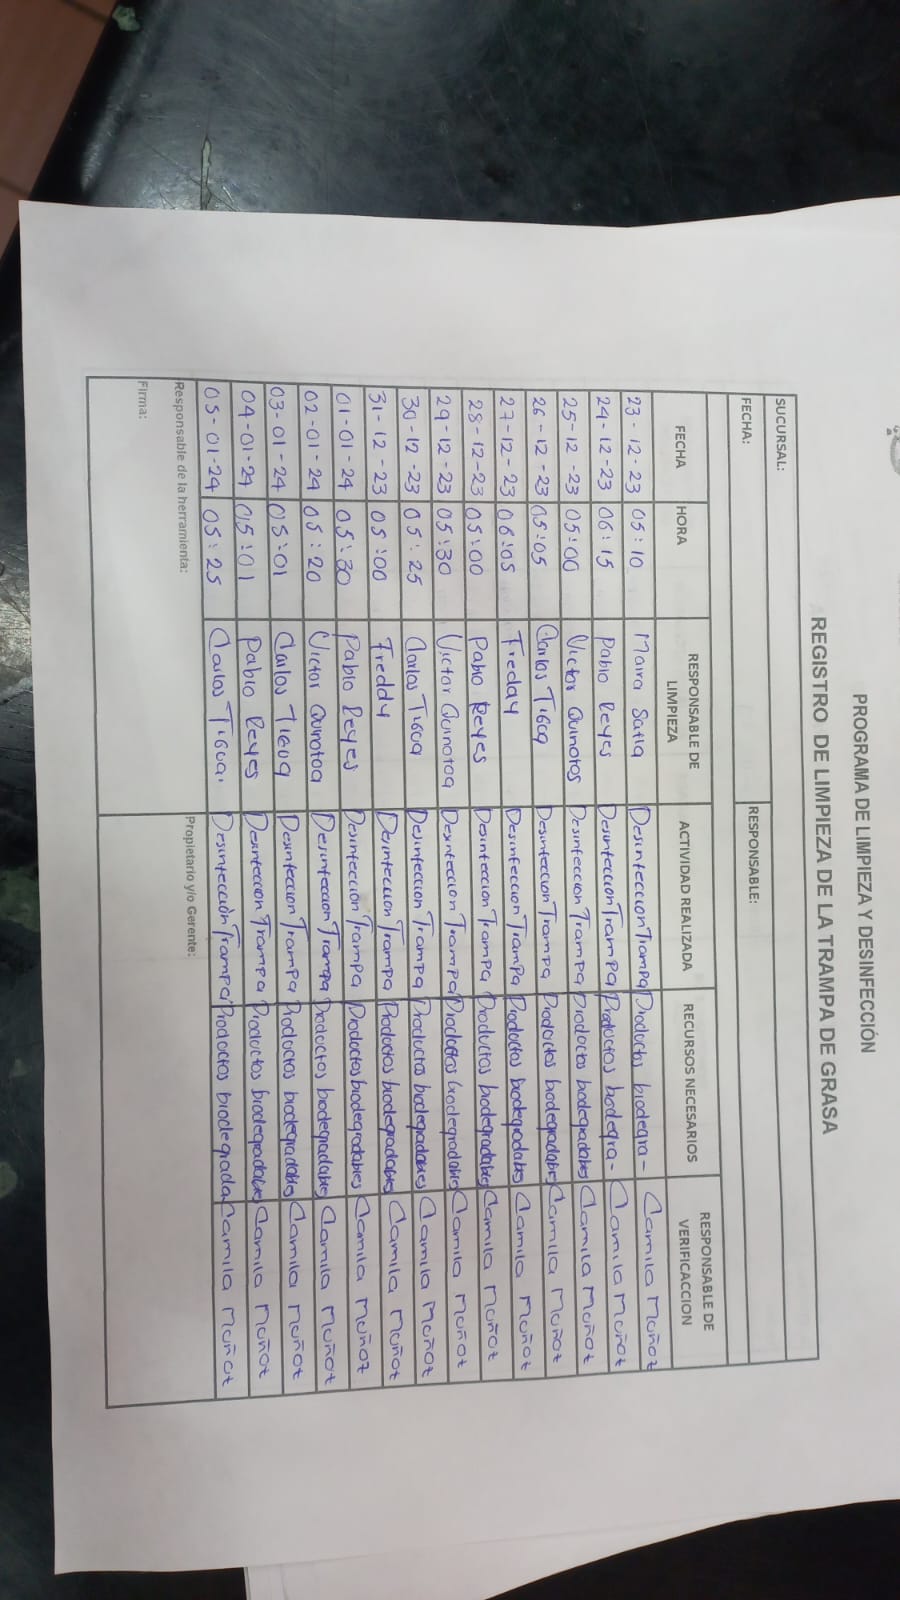 PROGRAMA DE LIMPIEZA Y DESINFECCIÓN
REGISTRO DE LIMPIEZA DE LA TRAMPA DE GRASA
SUCURSAL:
FECHA: RESPONSABLE:
FECHA HORA RESPONSABLE DE LIMPIEZA ACTIVIDAD REALIZADA RECURSOS NECESARIOS RESPONSABLE DE VERIFICACCION
23-12-23 05:10 Maira Satla Desinteccion Trampa Productos biodegra- Camila Muñoz
24-12-23 06:15 Pablo Reyes Desinteccion Trampa Productos biodegra- Camila Muñoz
25-12-23 05:00 Victor Quinotos Desinfeccion Trampa Productos biodegradables Camila Muñoz
26-12-23 05:05 Carlos Tigua Desinfeccion Trampa Productos biodegradables Camila Muñoz
27-12-23 06:05 Freddy Desinfeccion Trampa Productos biodegradables Camila Muñoz
28-12-23 05:00 Pablo Reyes Desinfeccion Trampa Productos biodegradables Camila Muñoz
29-12-23 05:30 Victor Quinotoa Desinteccion Trampa Productos biodegradables Camila Muñoz
30-12-23 05:25 Carlos Tigua Desinfeccion Trampa Productos biodegadables Camila Muñoz
31-12-23 05:00 Freddy Desinteccion Trampa Productos biodegradables Camila Muñoz
01-01-24 05:30 Pablo Reyes Desinfección Trampa Productos biodegradables Camila Muñoz
02-01-24 05:20 Victor Quinotoa Desinteccion Trampa Productos biodegradables Camila Muñoz
03-01-24 05:01 Carlos Tigua Desinteccion Trampa Productos biodegradables Camila Muñoz
04-01-24 05:01 Pablo Reyes Desinteccion Trampa Productos biodegradables Camila Muñoz
05-01-24 05:25 Carlos Tigua. Desinfección Trampa Productos biodegrada Camila Muñoz
Responsable de la herramienta: Propietario y/o Gerente:
Firma: